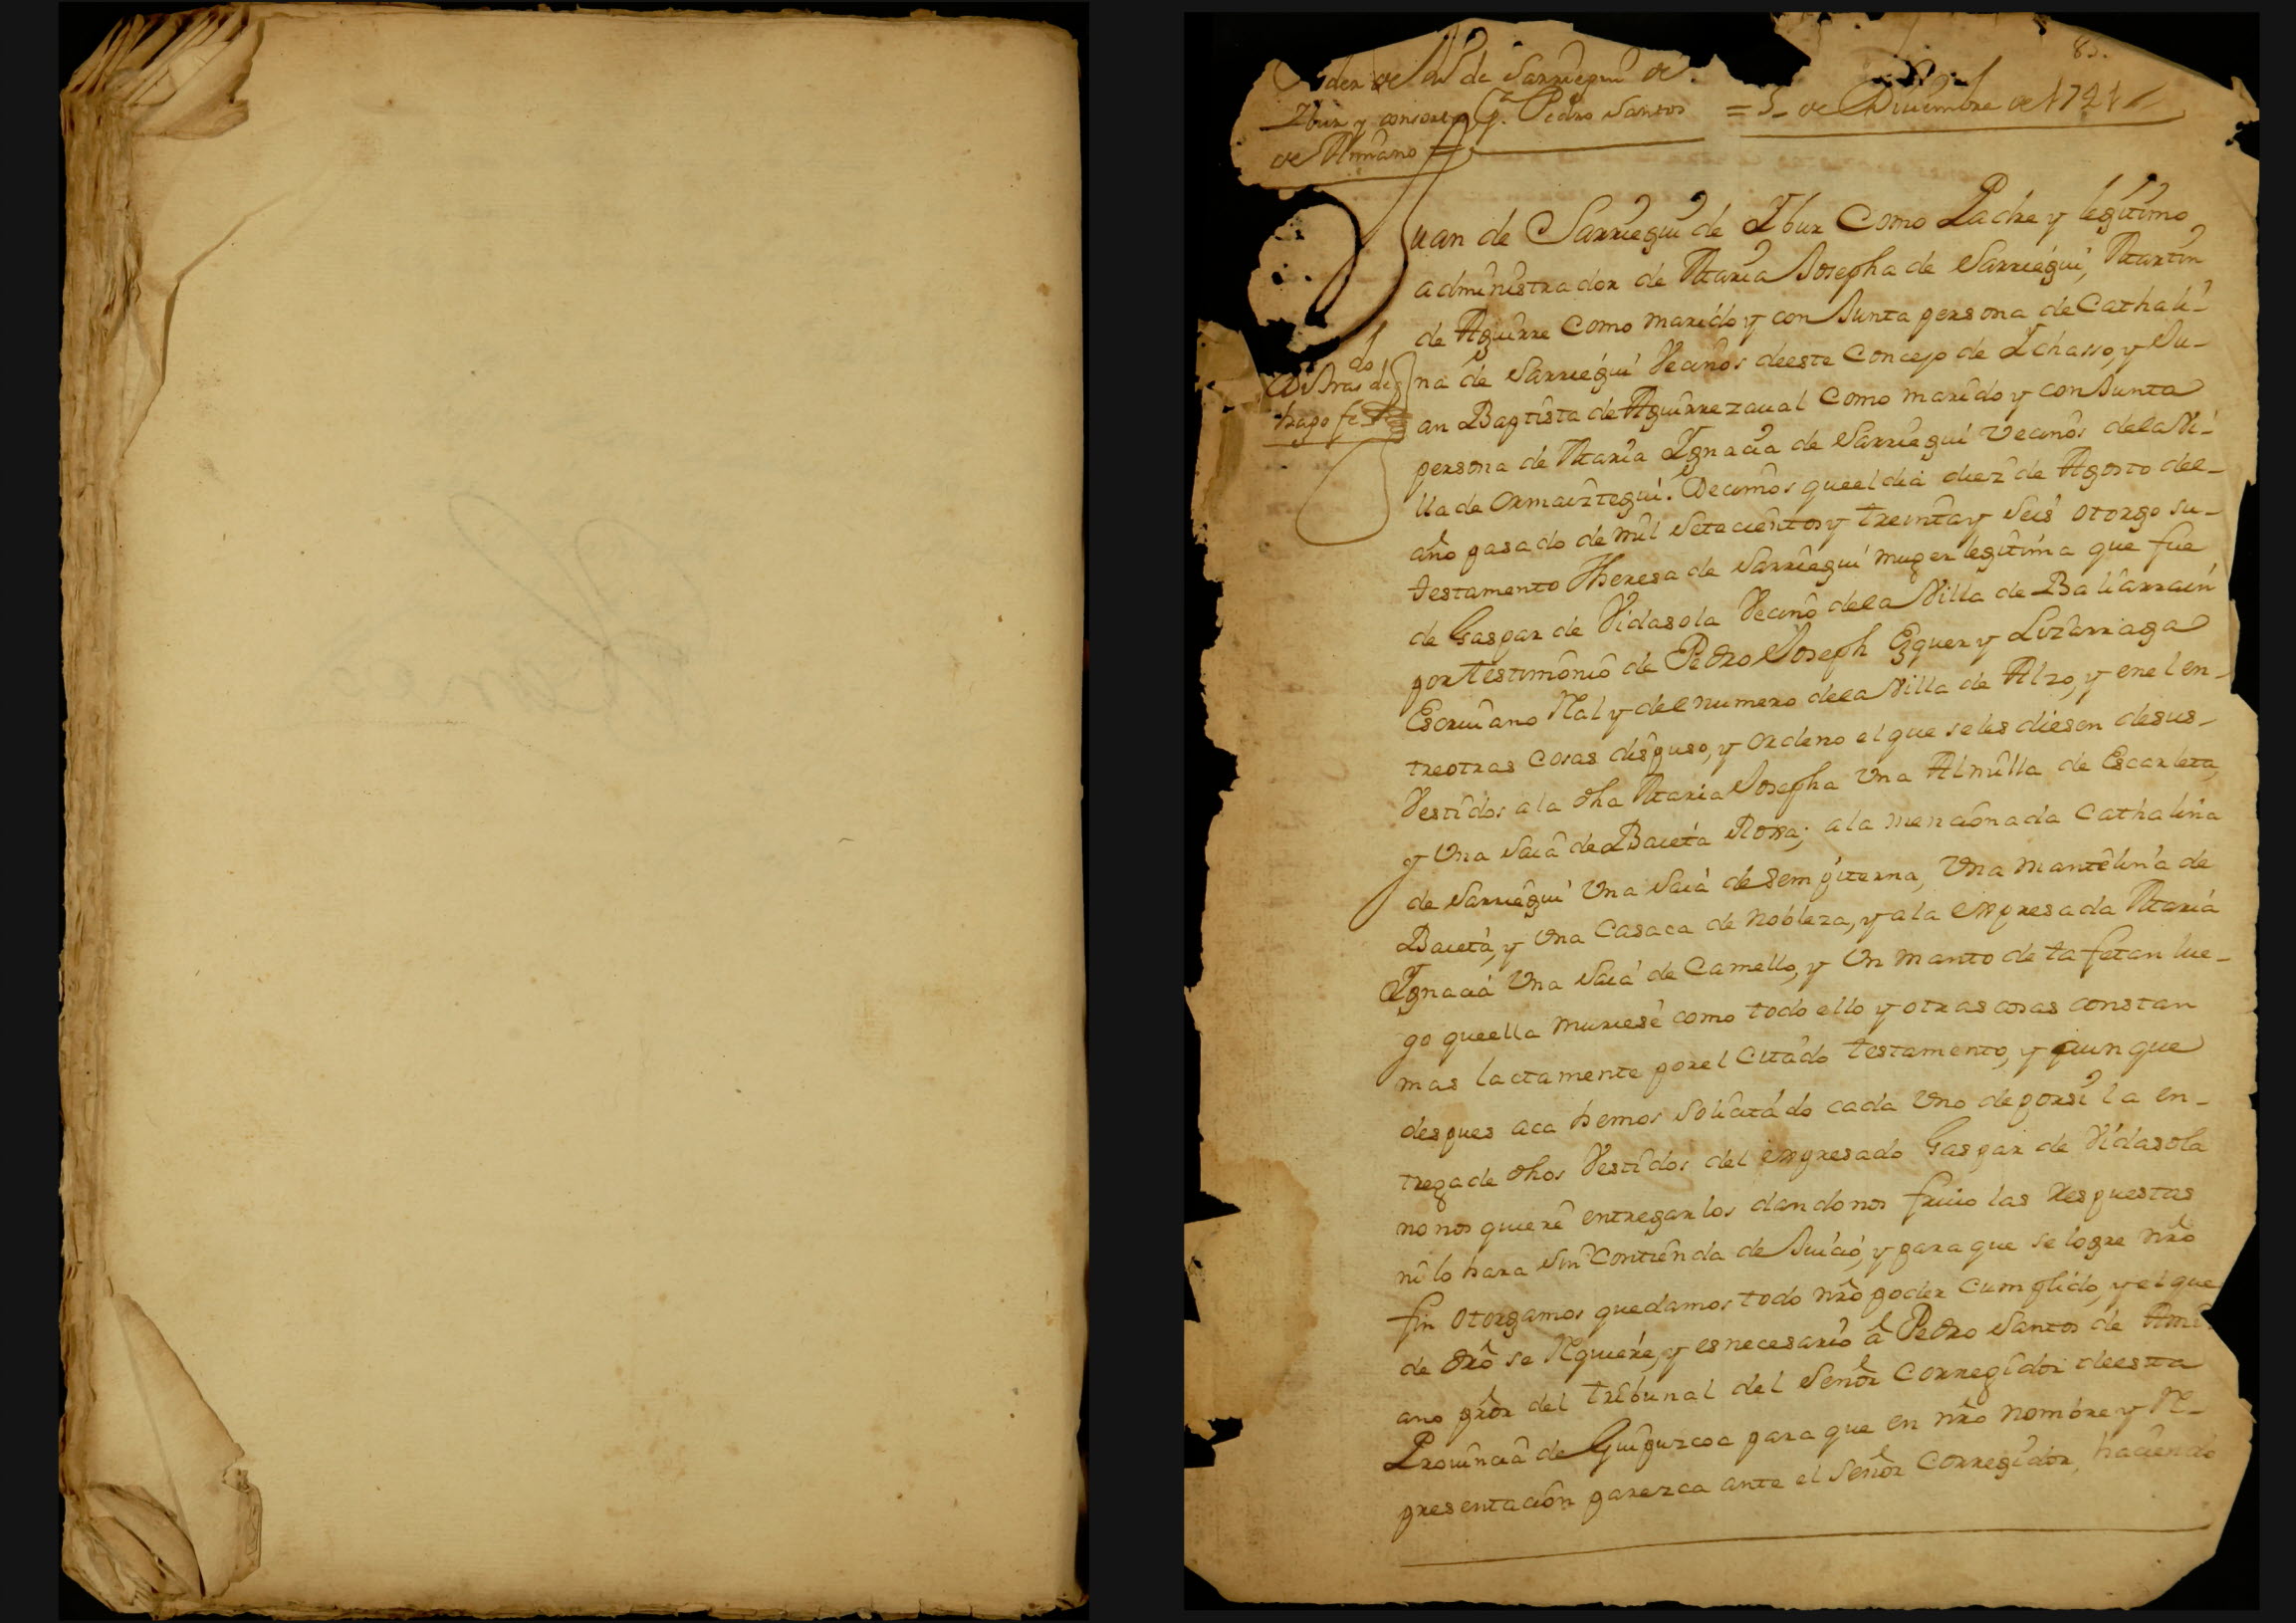 83.
der de Ju.º de Sarriegui de
Ybur y consortes Pª. Pedro Santos
de Amiano
= 5 de Diciembre de 1741
Juan de Sarriegui de Ybur Como Padre y legitimo
administrador de Maria Josepha de Sarriegui, Martin
de Aguirre Como marido y conJunta persona de Cathali-
na de Sarriegui Vecinos deeste Concejo de Ichasso, y Ju-
an Baptista de Aguirrezaual Como marido y conJunta
persona de Maria Ignacia de Sarriegui Vecinos dela Vi-
lla de Ormaiztegui. Decimos queel dia diez de Agosto del-
año pasado de mil Setecientos y treinta y Seis otorgo su-
testamento Theresa de Sarriegui muger legitima que fue
de Gaspar de Vidasola Vecino dela Villa de Baliarrain
por testimonio de Pedro Joseph Ezquer y Lizarraga
Escriuano Ral y del numero dela Villa de Alzo, y enel en-
treotras cosas dispuso, y ordeno el que seles diesen desus-
Vestidos ala dha Maria Josepha Una Almilla de Escarleta,
y Una Saia de Baieta Roxa; ala mencionada Cathalina
de Sarriegui Una Saia de Sempiterna, Una mantelina de
Baieta, y Una Casaca de Nobleza, y ala expresada Maria
Ignacia Una Saia de Camello, y Un manto de tafetan lue-
go queella muriese como todo ello y otras cosas constan
mas lactamente porel Citado testamento, y aunque
despues aca hemos Solicitado cada Uno deporsi la en-
trega de dhos Vestidos del expresado Gaspar de Vidasola
no nos quiere entregarlos dandonos friuolas Respuestas
ni lo hara Sin Contienda de Juicio, y para que se logre nro
fin otorgamos quedamos todo nro poder Cumplido, y el que
de dro se Rquiere, y es necesario â Pedro Santos de Ami-
ano pror del tribunal del Señor Corregidor deesta
Prouincia de Guipuzcoa para que en nro nombre y R-
presentacion parezca ante el Señor Corregidor, haciendo
do
hago fe